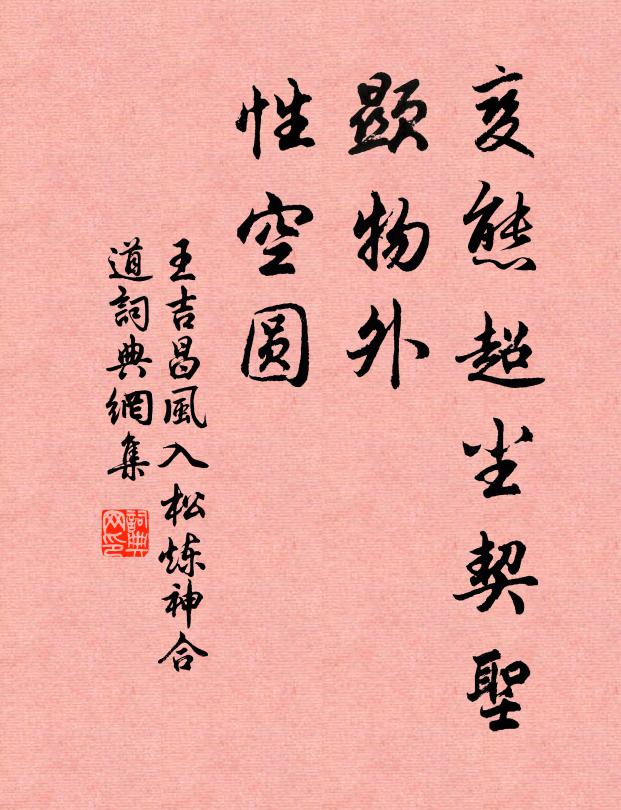 变态超尘契聖
顯物外
性空圆
王吉昌風入松炼神合
道詞典網集
詞典网印